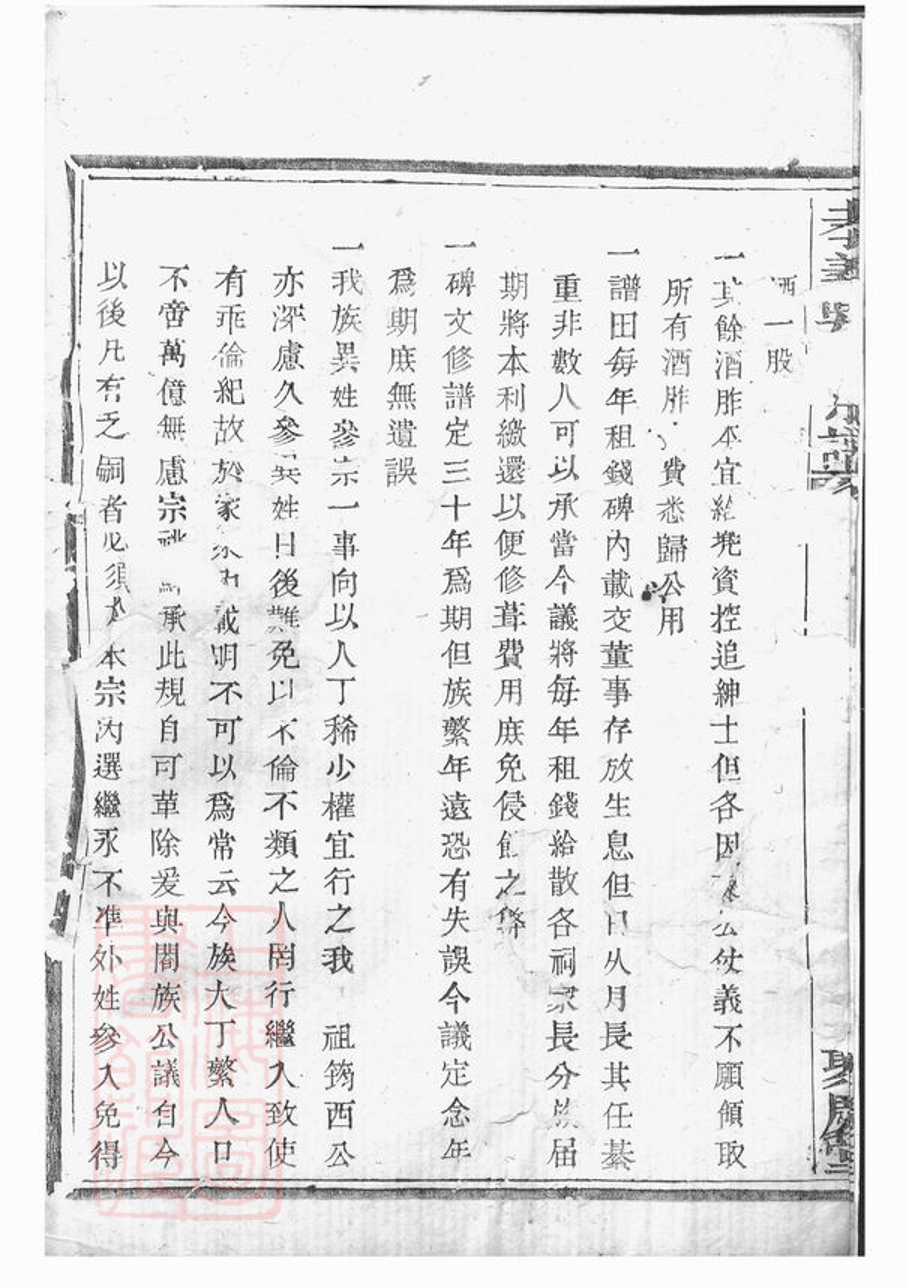 酒一股
一其餘酒胙本宜給凳資控追紳士但各因 公仗義不願領取
所有酒胙 費悉歸公用
一譜田每年租錢碑內載交董事存放生息但日久月長其任綦
重非數人可以承當今議將每年租錢給散各祠家長分 屆
期將本利繳還以便修葺費用庶免侵蝕之弊
一碑文修譜定三十年爲期但族繁年遠恐有失誤今議定念年
爲期庶無遺誤
一我族異姓參宗一事向以人丁稀少權宜行之我 祖筠西公
亦深慮久參異姓日後難免以不倫不類之人罔行繼入致使
有乖倫紀故於家 內載明不可以爲常云今族大丁繁人口
不啻萬億無慮宗祧 承此規自可革除爰與閤族公議自今
以後凡有乏嗣者必須 本宗內選繼永不準外姓參入免得